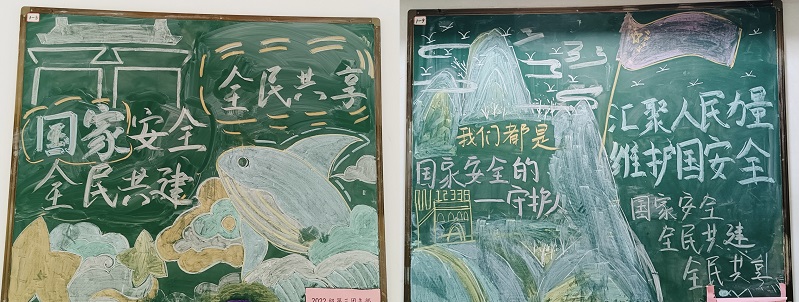 全民共享
国家安全
全民共建
2022
我们都是
国家安全的
一守护人
12339
汇聚人民力量
维护国安全
国家安全
全民共建
全民共享